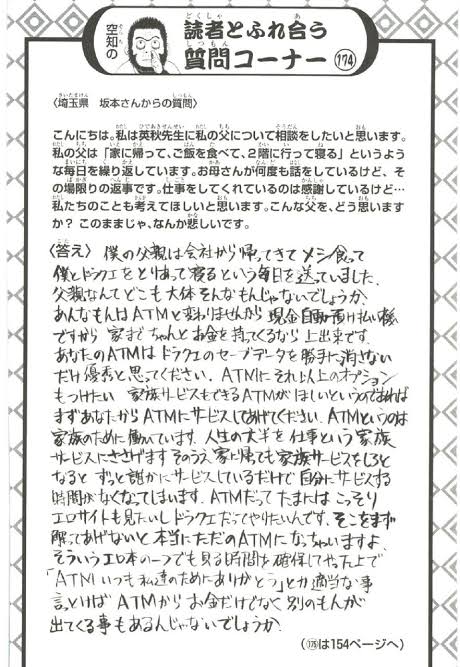 空知の
読者とふれ合う
質問コーナー 174
〈埼玉県 坂本さんからの質問〉
こんにちは。私は英秋先生に私の父について相談をしたいと思います。
私の父は「家に帰って、ご飯を食べて、2階に行って寝る」というよう
な毎日を繰り返しています。お母さんが何度も話をしているけど、そ
の場限りの返事です。仕事をしてくれているのは感謝しているけど…
私たちのことも考えてほしいと思います。こんな父を、どう思います
か? このままじゃ、なんか悲しいです。
〈答え〉 僕の父親は会社から帰ってきて メシ食って
僕とドラクエをとりあって寝るという毎日を送っていました。
父親なんてどこも大体そんなもんじゃないでしょうか。
あんなもんはATMと変わりませんから 現金自動預け払い機
ですから 家までちゃんとお金を持ってくるなら上出来です。
あなたのATMはドラクエのセーブデータを勝手に消さない
だけ優秀と思ってください。ATMにそれ以上のオプション
もつけたい 家族サービスもできるATMがほしいというのであれば
まずあなたからATMにサービスしてあげてください。ATMというのは
家族のために働いています。人生の大半を仕事という家族
サービスにささげます そのうえ家に帰っても家族サービスをしろと
なると ずっと誰かにサービスしているだけで自分にサービスする
時間がなくなってしまいます。ATMだって たまには こっそり
エロサイトも見たいし ドラクエだってやりたいんです。そこをまず
解ってあげないと 本当にただのATMになっちゃいますよ
そういうエロ本の一つでも見る時間を確保してやった上で
「ATMいつも私達のためにありがとう」とか適当な事
言っとけば ATMから お金だけでなく 別のもんが
出てくる事もあるんじゃないでしょうか。
(175は154ページへ)